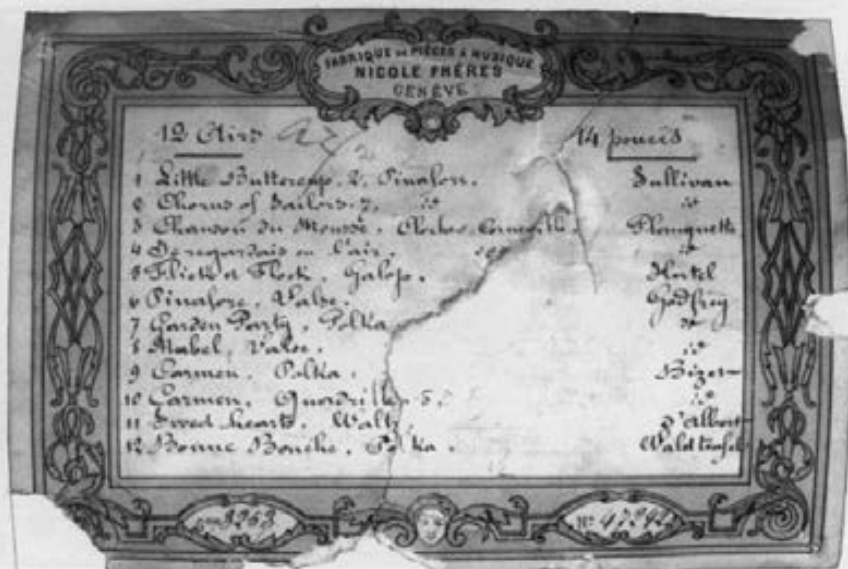 FABRIQUE DE PIÈCES A MUSIQUE
NICOLE FRÈRES
GENÈVE
12 Airs 14 pouces
1 Little Buttercup. 2. Pinafore. Sullivan
2 Chorus of Sailors. 7. id id
3 Chanson du Mousse. Cloches Corneville. Planquette
4 Je regardais en l'air. id id
5 Flick et Flock. Galop. Hertel
6 Pinafore. Valse. Godfrey
7 Garden Party. Polka id
8 Mabel, Valse. id
9 Carmen. Polka. Bizet
10 Carmen. Quadrille. 5. id
11 Sweethearts. Waltz. d'Albert
12 Bonne Bouche. Polka. Waldteufel
3263
No. 47242